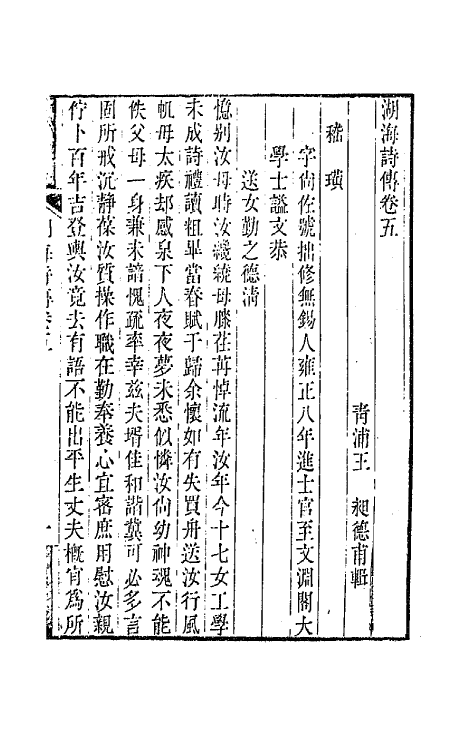 湖海詩傳卷五
青浦王　昶德甫輯
嵇　璜
字尚佐號拙修無錫人雍正八年進士官至文淵閣大
學士諡文恭
送女勤之德清
憶别汝母時汝纔繞母膝荏苒悼流年汝年今十七女工學
未成詩禮讀粗畢當春賦于歸余懷如有失買舟送汝行風
帆毋太疾却感泉下人夜夜夢來悉似憐汝尚幼神魂不能
佚父母一身兼未諳愧疏率幸兹夫壻佳和諧冀可必多言
固所戒沉靜葆汝質操作職在勤奉養心宜密庶用慰汝親
佇卜百年吉登輿汝竟去有語不能出平生丈夫概肎為所
湖海詩傳卷五
一